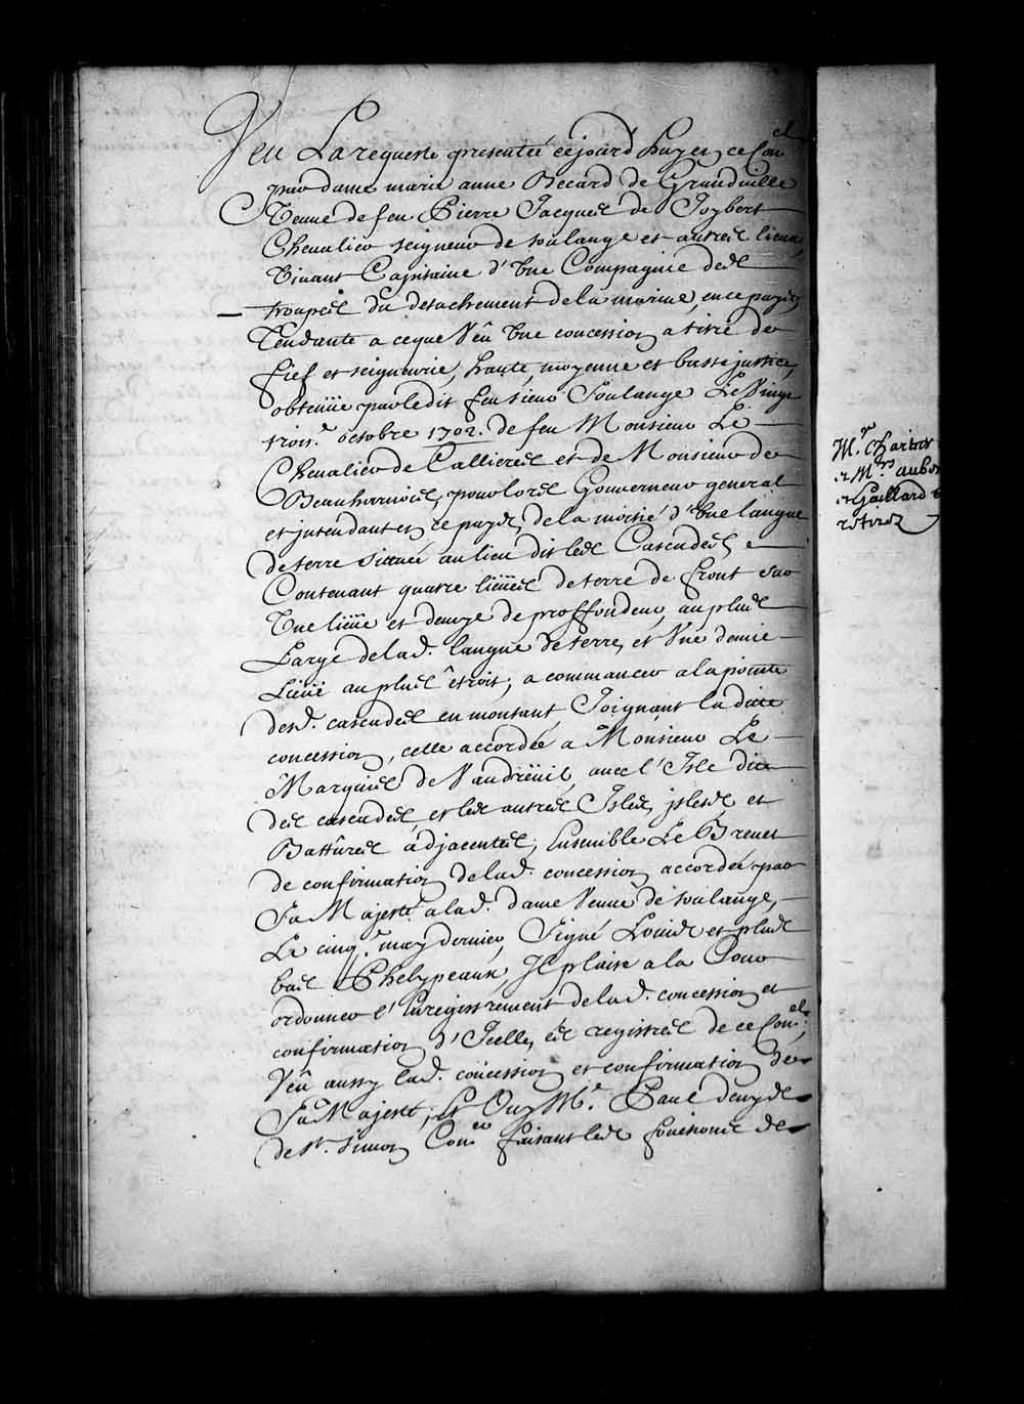 Veu La requeste presentée cejourd'huy en ce Con.el
par dame marie anne Becard de Grandville
Veuve de feu Pierre Jacques de Joybert
Chevalier seigneur de soulange et autres lieux
Vivant Capitaine d'Une Compagnie des
troupes du detachement de la marine, en ce pays,
Tendante a ce que Veû Une concession a titre de
fief et seigneurie, haute, moyenne et basse justice,
obtenüe par ledit feu sieur Soulange Le Vingt
trois.e octobre 1702. de feu Monsieur Le
Chevalier de Callieres et de Monsieur de
Beauharnois, pour lors Gouverneur general
et jntendant en ce pays, de la moitié d'Une langue
de terre scituée au lieu dit les Cascades,
Contenant quatre lieües de terre de front sur
Une lieüe et demye de proffondeur, au plus
Large de lad. langue de terre, et Une demie
Lieüe au plus êtroit; a commancer a la pointe
desd. cascades en montant, Joignant la dite
concession, celle accordée a Monsieur Le
Marquis de Vaudreüil, avec l'Isle dite
des cascades, et les autres Isles, jslets, et
Battûres adjacentes; Ensemble Le Brevet
de confirmation de lad. concession accordée par
Sa Majesté a lad. dame Veuve de soulange,
Le cinq.e may dernier, Signé Louis et plus
bas Phelypeaux, Il plaise a la Cour
ordonner l'Enregistrement de lad. concession et
confirmation d'Icelle, es registres de ce Con.el;
Veû aussy lad. concession et confirmation de
Sa Majesté; Et Ouy M.e Paul denys
de S.t Simon Con.er faisant les fonctions de
M.r Chartier
et M.rs aubert
et Gaillard
retirez